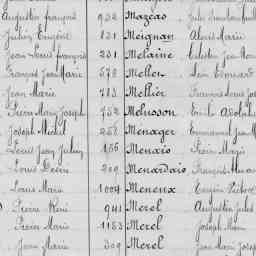 Augustin françois 932 Mazeas Jules
Julien Eugène 131 Meignan Alexis Marie
Jean Louis françois 231 Melaine Célestin Jean
François Jean Marie 578 Mellet Léon Edouard
Jean Marie 783 Mellier
Pierre Marie Joseph 752 Melusson Emile
Joseph Michel 258 Menager Emmanuel Jean
Louis Jean Julien 166 Menxio Pierre Marie
Louis 209 Menardais François
Louis Marie 1004 Meneux Eugène
Pierre René 941 Merel Augustin Jules
Pierre Marie 1183 Merel Joseph Marie
Jean Marie 309 Merel Jean Marie Joseph